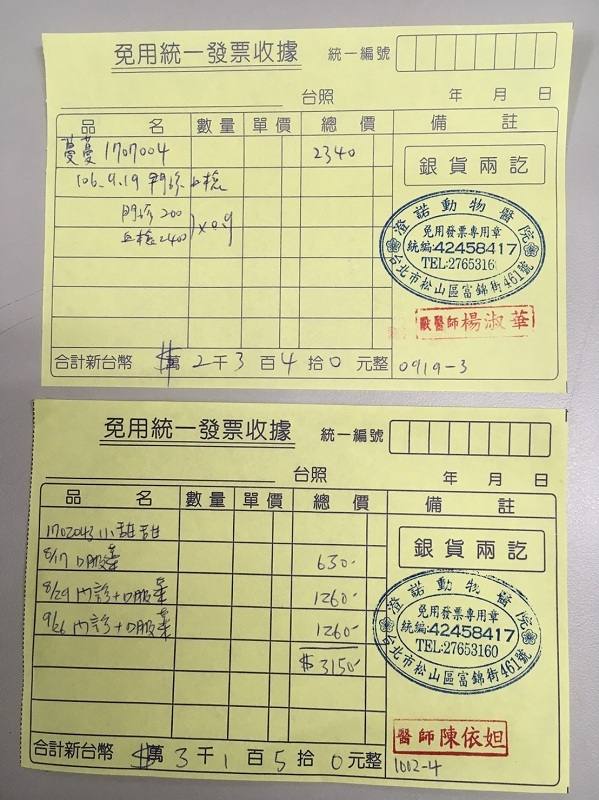 免用統一發票收據
統一編號
台照 年 月 日
品 名 數量 單價 總價 備註
蔓蔓 1707004 2340
106.9.19 門診 血檢
門診 200
血檢 2400 } x0.9
銀貨兩訖
澄諾動物醫院
免用發票專用章
統編:42458417
TEL:2765316
台北市松山區富錦街461號
獸醫師楊淑華
合計新台幣 $萬2千3百4拾0元整 0919-3
免用統一發票收據
統一編號
台照 年 月 日
品 名 數量 單價 總價 備註
1702043 小甜甜
8/17 口服藥 630-
8/29 內診+口服藥 1260-
9/26 內診+口服藥 1260-
$3150-
銀貨兩訖
澄諾動物醫院
免用發票專用章
統編:42458417
TEL:27653160
台北市松山區富錦街461號
醫師陳依妲
合計新台幣 $萬3千1百5拾0元整 1002-4